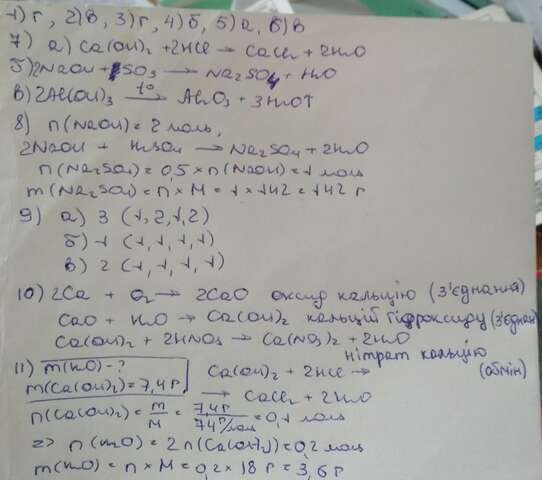 1) г, 2) в, 3) г, 4) б, 5) а, 6) в
7) а) Ca(OH)₂ + 2HCl → CaCl₂ + 2H₂O
б) 2NaOH + SO₃ → Na₂SO₄ + H₂O
в) 2Al(OH)₃ t° → Al₂O₃ + 3H₂O↑
8) n(NaOH) = 2 моль,
2NaOH + H₂SO₄ → Na₂SO₄ + 2H₂O
n(Na₂SO₄) = 0,5 × n(NaOH) = 1 моль
m(Na₂SO₄) = n × M = 1 × 142 = 142 г
9) а) 3 (1, 2, 1, 2)
б) 1 (1, 1, 1, 1)
в) 2 (1, 1, 1, 1)
10) 2Ca + O₂ → 2CaO оксид кальцію (з'єднання)
CaO + H₂O → Ca(OH)₂ кальцій гідроксиду (з'єднан
Ca(OH)₂ + 2HNO₃ → Ca(NO₃)₂ + 2H₂O
нітрат кальцію (обмін)
11) m(H₂O) - ? Ca(OH)₂ + 2HCl →
m(Ca(OH)₂) = 7,4 г. → CaCl₂ + 2H₂O
n(Ca(OH)₂) = m/M = 7,4 г / 74 г/моль = 0,1 моль
=> n(H₂O) = 2n(Ca(OH)₂) = 0,2 моль
m(H₂O) = n × M = 0,2 × 18 г = 3,6 г